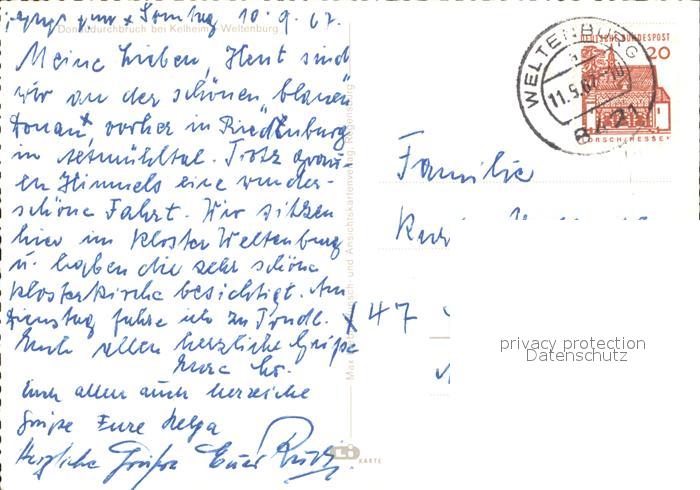 Sonntag 10.9.67.
Donaudurchbruch bei Kelheim - Weltenburg
Meine Lieben, Heut sind
wir an der schönen "blauen
Donau", vorher in Riedenburg
im Altmühltal. Trotz grau-
en Himmels eine wunder-
schöne Fahrt. Wir sitzen
hier im Kloster Weltenburg
u. haben die sehr schöne
Klosterkirche besichtigt. Am
Dienstag fahre ich zu
Euch allen herzliche Grüße
Eure
Euch allen auch herzliche
Grüße Eure Helga
Herzliche Grüße Euer Rudi
DEUTSCHE BUNDESPOST
20
LORSCH/HESSEN
WELTENBURG
11.9.67
8421
Familie
47
privacy protection
Datenschutz
KARTE